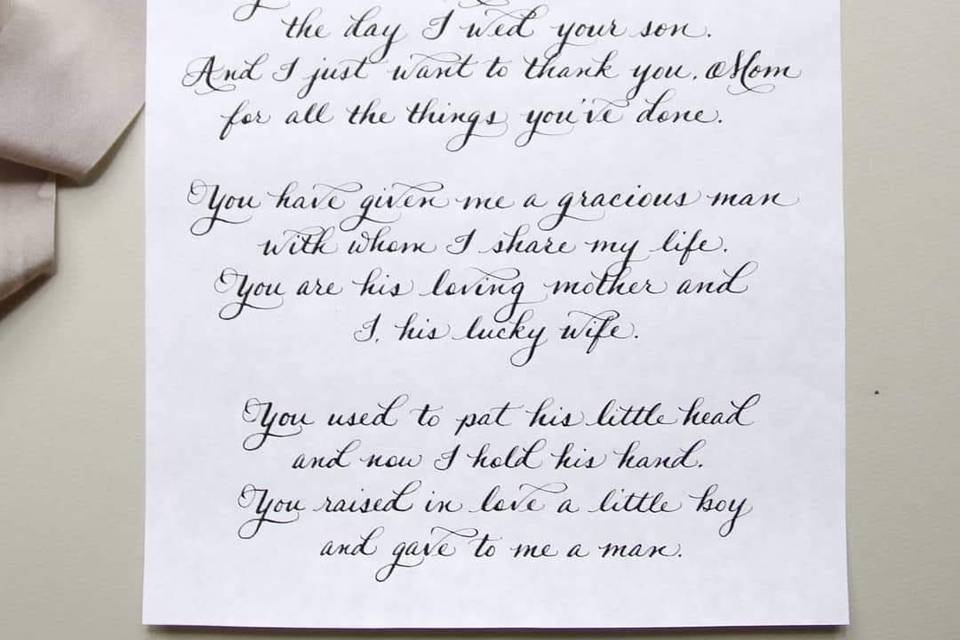 the day I wed your son.
And I just want to thank you, Mom
for all the things you've done.
You have given me a gracious man
with whom I share my life.
You are his loving mother and
I, his lucky wife.
You used to pat his little head
and now I hold his hand.
You raised in love a little boy
and gave to me a man.